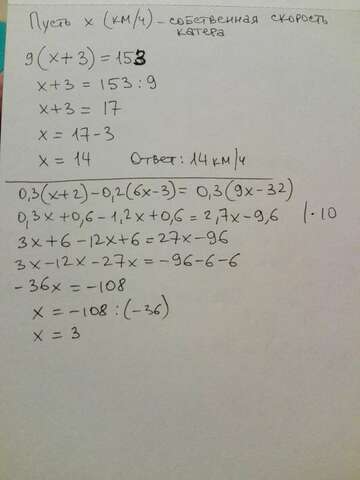 Пусть x (км/ч) – собственная скорость
катера
9(x+3)=153
x+3=153:9
x+3=17
x=17-3
x=14 Ответ: 14 км/ч
0,3(x+2)-0,2(6x-3)=0,3(9x-32)
0,3x+0,6-1,2x+0,6=2,7x-9,6 |·10
3x+6-12x+6=27x-96
3x-12x-27x=-96-6-6
-36x=-108
x=-108:(-36)
x=3